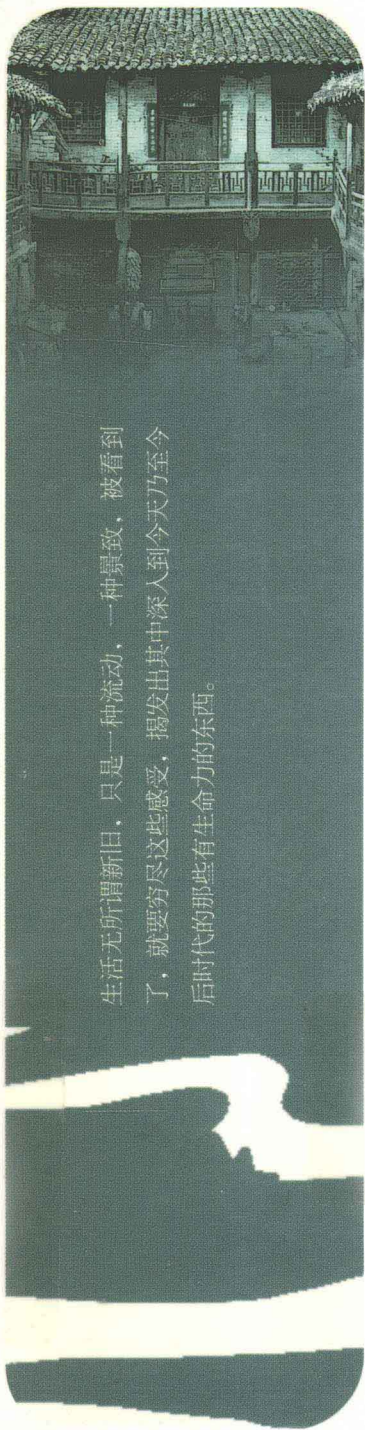 生活无所谓新旧，只是一种流动，一种景致，被看到
了，就要穷尽这些感受，揭发出其中深入到今天乃至今
后时代的那些有生命力的东西。